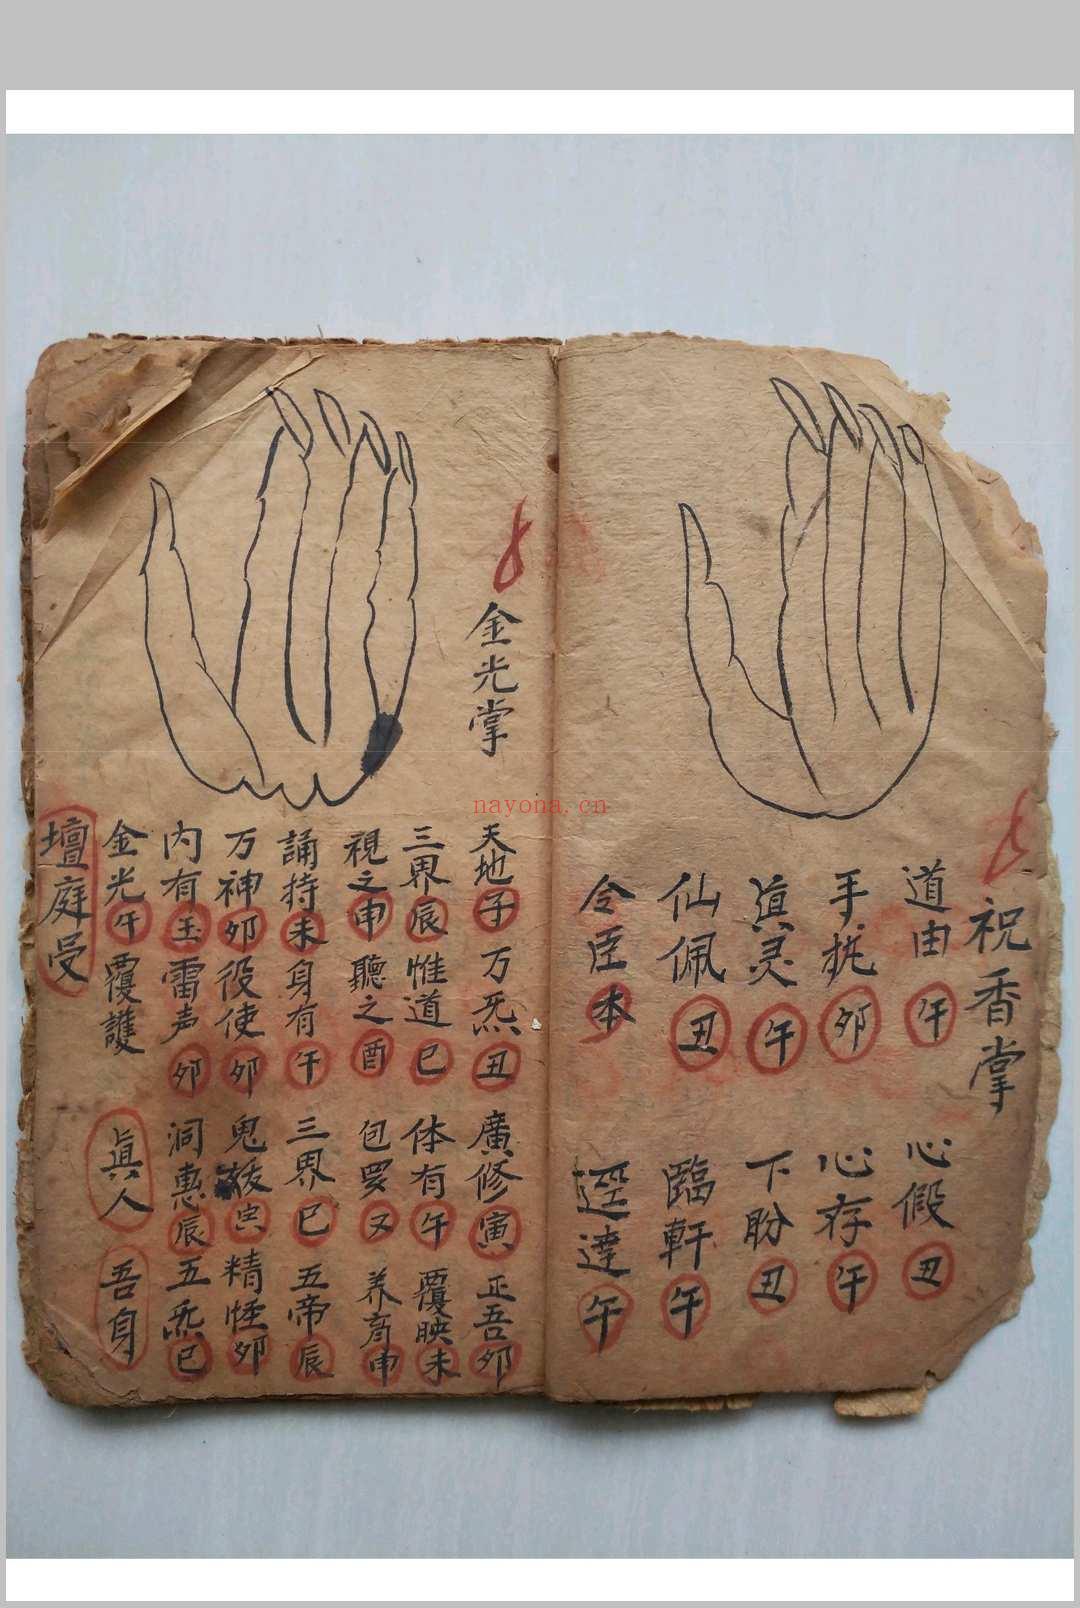 祝香掌
道由午 心假丑
手扰卯 心存午
真灵午 下盼丑
仙佩丑 臨軒午
令臣本 逕達午
金光掌
天地子 万炁丑 廣修寅 正吾卯
三界辰 惟道巳 体有午 覆映未
視之申 聽之酉 包罗又 养育申
誦持未 身有午 三界巳 五帝辰
万神卯 役使卯 鬼 精怪卯
内有玉 雷声卯 洞惠辰 五炁巳
金光午 覆護 真人 吾身
壇庭受
nayona.cn